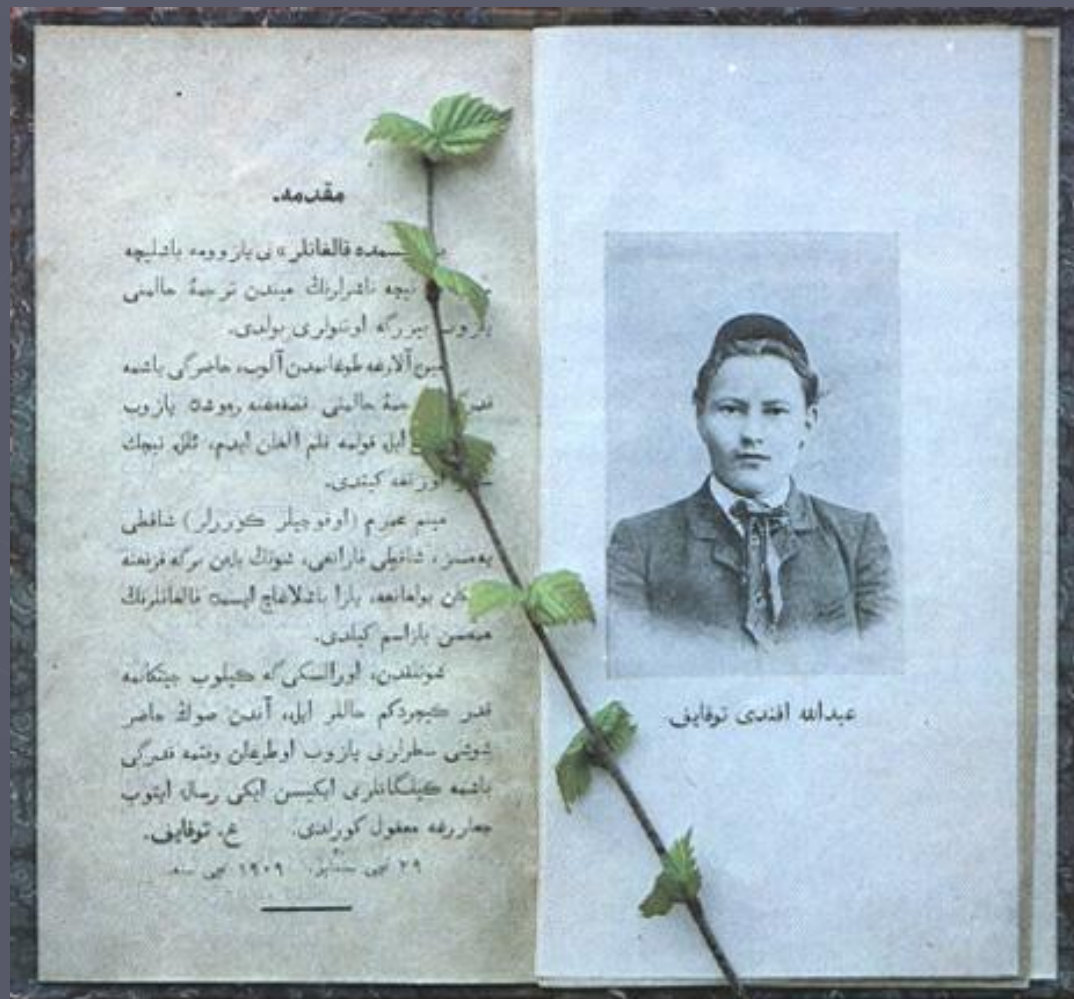 مقدمه.
قالغانلر» نی یازوومه باشلیچه
نیچه ناشرلرنڭ میندن ترجمهٔ حالمنی
یازوب بیررگه اوتنولری بولدی.
مین آلارغه طوغانمدن آلوب، حاضرگی باشمه
حالمنی یازوب
ایله قولمه قلم آلغان ایدم، نیچك
کیتدی.
مینم عمرم (اوقوچیلر کوررلر) شاقطی
یه‌مسز، شاقطی قارانغی، شونڭ بلەن برگه
بولغانغه، یازا باشلاغاچ ایسمده قالغانلرنڭ
همه‌سن یازاسم کیلدی.
شونلقدن، اورالسکی گه کیلوب جیتکانمه
قدر کیچردکم حاللر ایله، آندن صوڭ حاضر
شوشی سطرلرنی یازوب اوطرغان وقتمه قدرگی
باشمه کیلگانلرنی ایکیسن ایکی رساله ایتوب
چغاررغه معقول کورلدی. ع. توقایف.
٢٩ نچی سنتابر، ١٩٠٩ نچی سنه.
عبدالله افندی توقایف